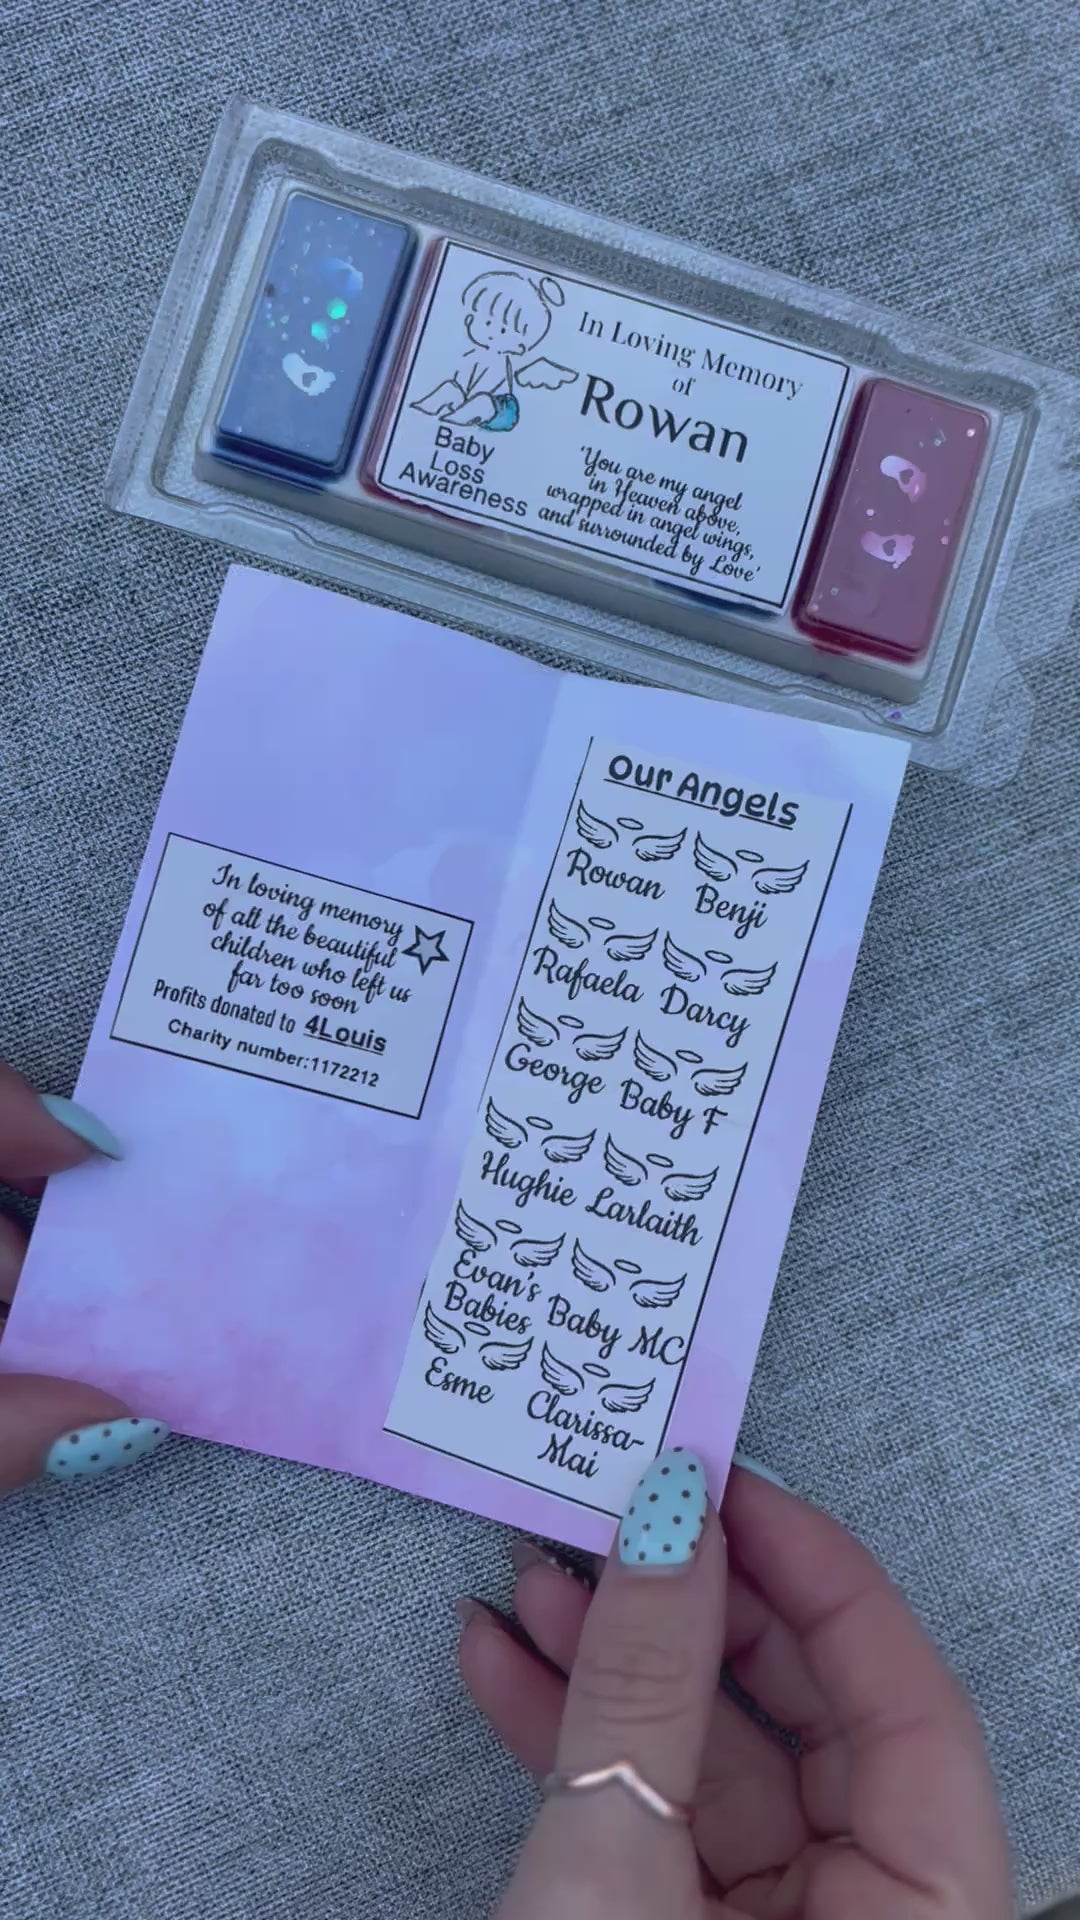 In Loving Memory
of
Rowan
'You are my angel
in Heaven above,
wrapped in angel wings,
and surrounded by Love'
Baby
Loss
Awareness
In loving memory
of all the beautiful
children who left us
far too soon
Profits donated to 4Louis
Charity number:1172212
Our Angels
Rowan Benji
Rafaela Darcy
George Baby F
Hughie Larlaith
Evan's
Babies
Baby MC
Esme
Clarissa-
Mai